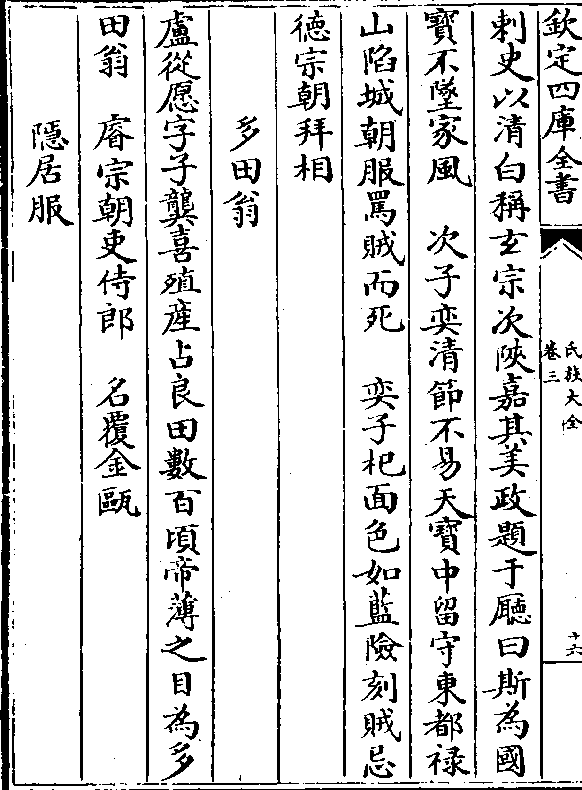 欽定四庫全書
氏族大全
卷三
十六
刺史以清白稱玄宗次陜嘉其美政題于廳曰斯為國
寳不墜家風　次子奕清節不易天寳中留守東都禄
山陷城朝服罵賊而死　奕子杞面色如藍險刻賊忌
德宗朝拜相
多田翁
盧從愿字子龔喜殖産占良田數百頃帝薄之目為多
田翁　睿宗朝吏侍郎　名覆金甌
隱居服